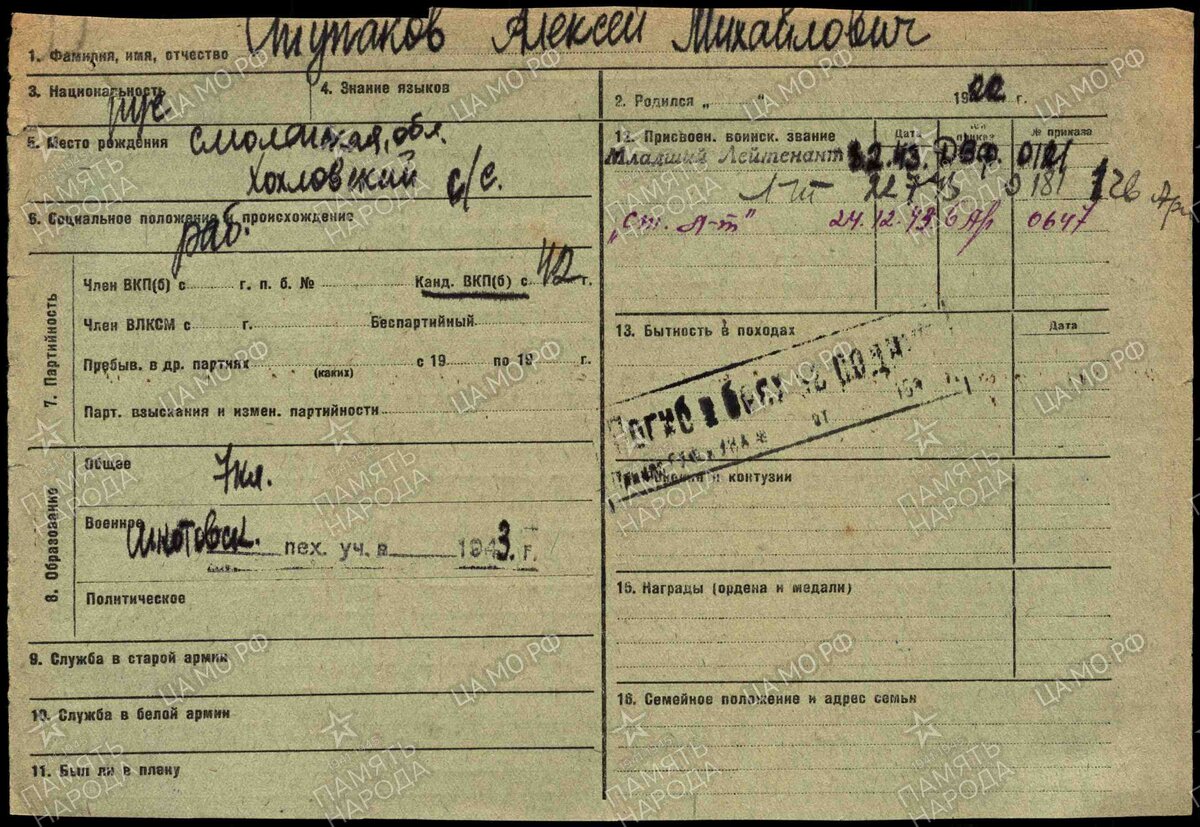 Ступаков Алексей Михайлович
1. Фамилия, имя, отчество
3. Национальность рус.
4. Знание языков
2. Родился „ “ 1922 г.
5. Место рождения Смоленская обл.
Хохловский с/с.
6. Социальное положение и происхождение
раб.
7. Партийность
Член ВКП(б) с г. п. б. № Канд. ВКП(б) с 42 г.
Член ВЛКСМ с г. Беспартийный
Пребыв. в др. партиях с 19 по 19 г.
(каких)
Парт. взыскания и измен. партийности
8. Образование
Общее 7 кл.
Военное
пех. уч. в 1943. г.
Политическое
9. Служба в старой армии
10. Служба в белой армии
11. Был ли в плену
12. Присвоен. воинск. звание Дата приказ № приказа
Младший Лейтенант 2.43. ДВФ. 0121
Л-т 22 7 43 0181 126
„Ст. л-т" 24.12.43. 6 Ар 0647
13. Бытность в походах Дата
Погиб в боях за
от 194
и контузии
15. Награды (ордена и медали)
16. Семейное положение и адрес семьи
ЦАМО.РФ
ПАМЯТЬ НАРОДА